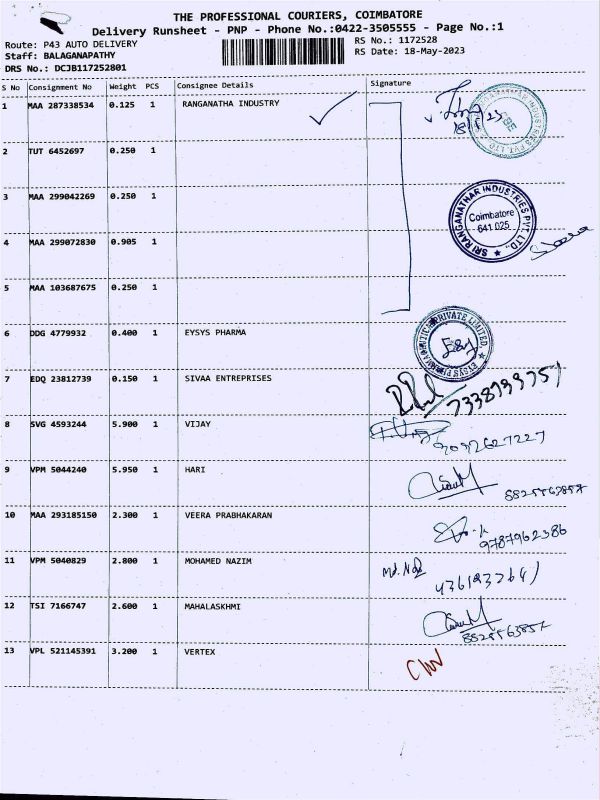 THE PROFESSIONAL COURIERS, COIMBATORE
Delivery Runsheet - PNP - Phone No.:0422-3505555 - Page No.:1
Route: P43 AUTO DELIVERY
RS No.: 1172528
Staff: BALAGANAPATHY
RS Date: 18-May-2023
DRS No.: DCJB117252801
S No Consignment No Weight PCS Consignee Details Signature
1 MAA 287338534 0.125 1 RANGANATHA INDUSTRY
2 TUT 6452697 0.250 1
3 MAA 299042269 0.250 1
SRI RANGANATHAR INDUSTRIES PVT. LTD.
Coimbatore
641 025
4 MAA 299072830 0.905 1
5 MAA 103687675 0.250 1
6 DDG 4779932 0.400 1 EYSYS PHARMA
7 EDQ 23812739 0.150 1 SIVAA ENTREPRISES
8 SVG 4593244 5.900 1 VIJAY
9092627227
9 VPM 5044240 5.950 1 HARI
10 MAA 293185150 2.300 1 VEERA PRABHAKARAN
9787962386
11 VPM 5040829 2.800 1 MOHAMED NAZIM
12 TSI 7166747 2.600 1 MAHALASKHMI
13 VPL 521145391 3.200 1 VERTEX